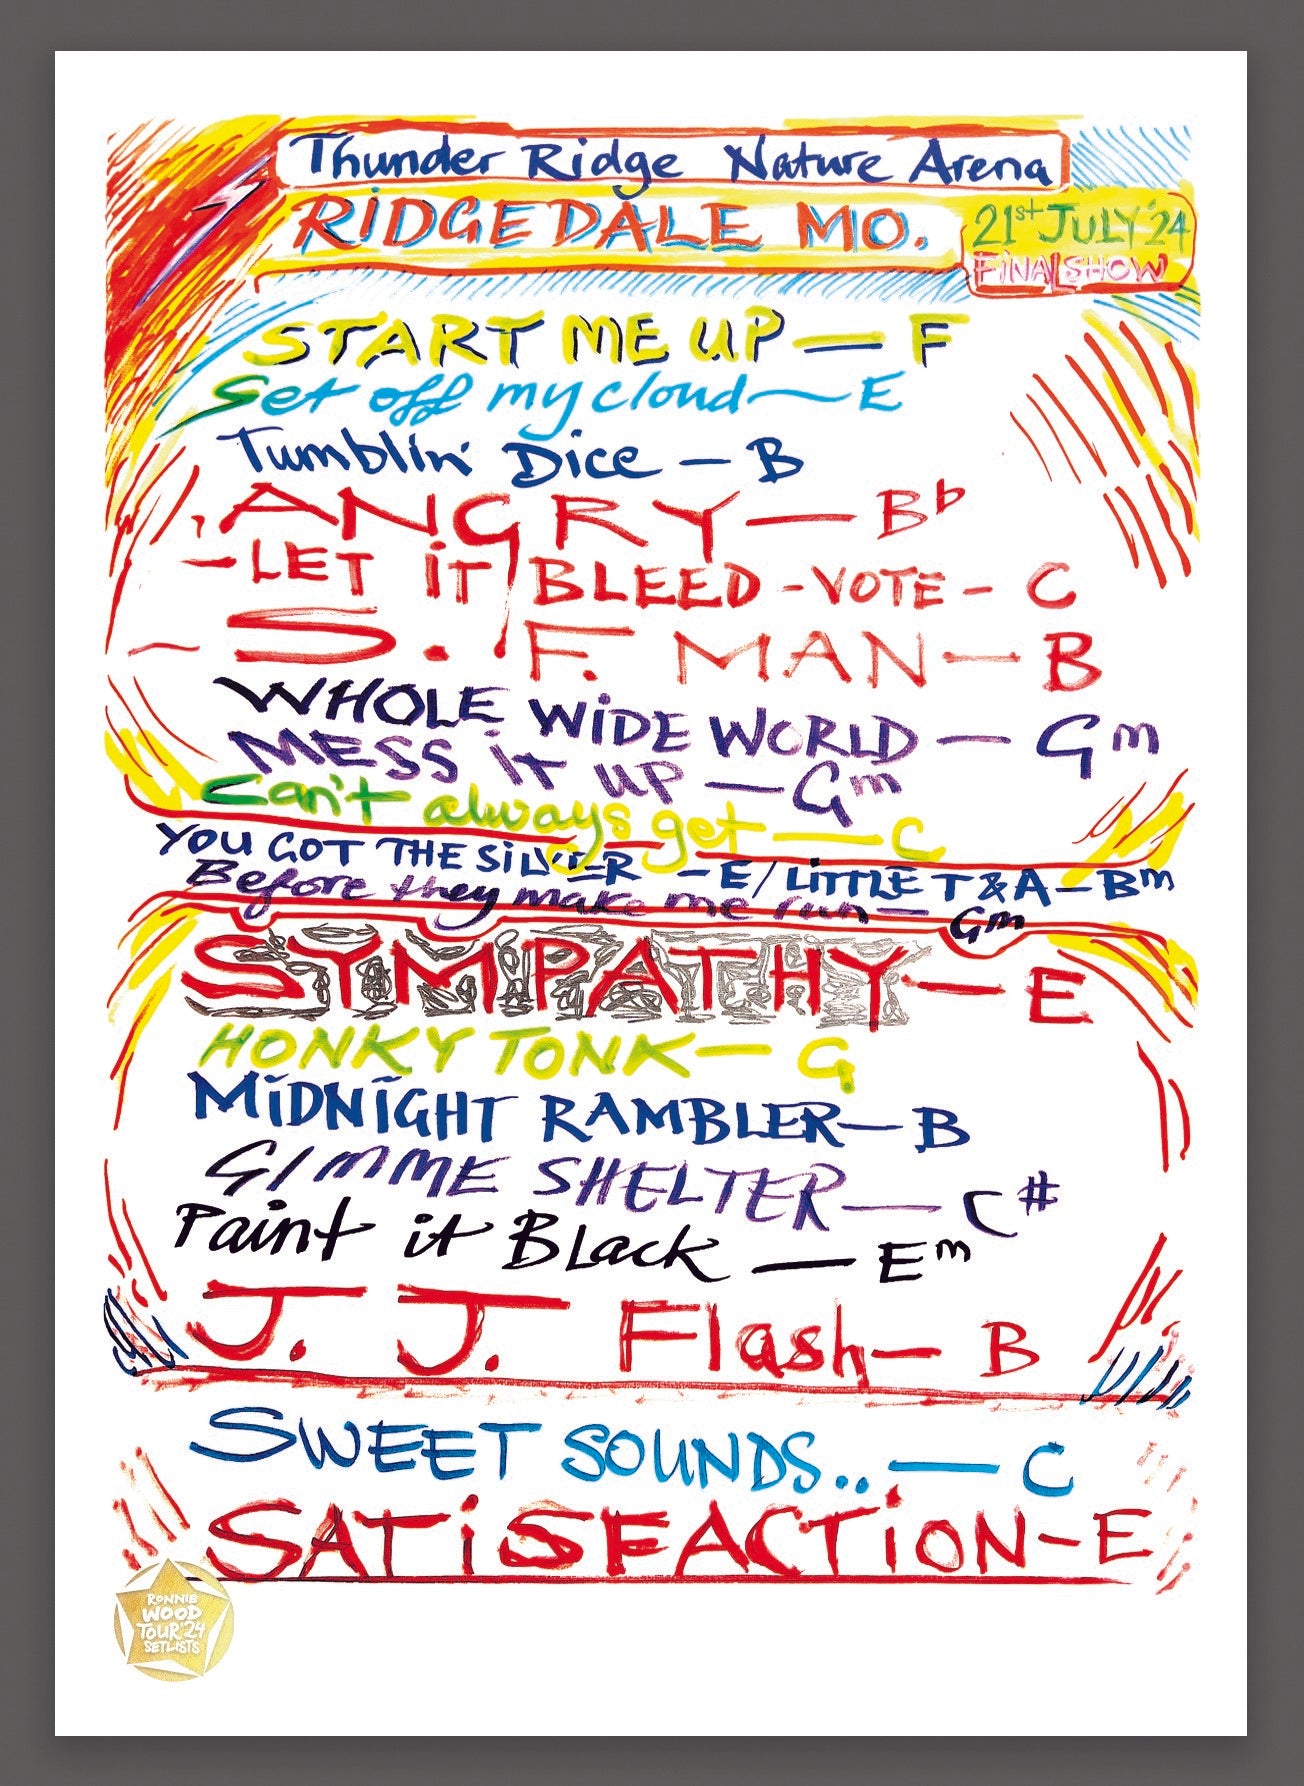 Thunder Ridge Nature Arena
RiDGEDALE MO.
21st JULY '24
FiNAL SHOW
START ME UP — F
Get off my cloud — E
Tumblin' Dice — B
ANGRY — B♭
- LET iT BLEED - VOTE - C
S. F. MAN — B
WHOLE WiDE WORLD — Gm
MESS iT UP — Gm
Can't always get — C
YOU GOT THE SiLVER - E / LiTTLE T & A - Bm
Before they make me run — Gm
SYMPATHY — E
HONKY TONK — G
MiDNiGHT RAMBLER — B
GIMME SHELTER — C#
Paint it Black — Em
J. J. Flash — B
SWEET SOUNDS.. — C
SATiSFACTiON - E
RONNIE
WOOD
TOUR '24
SETLISTS